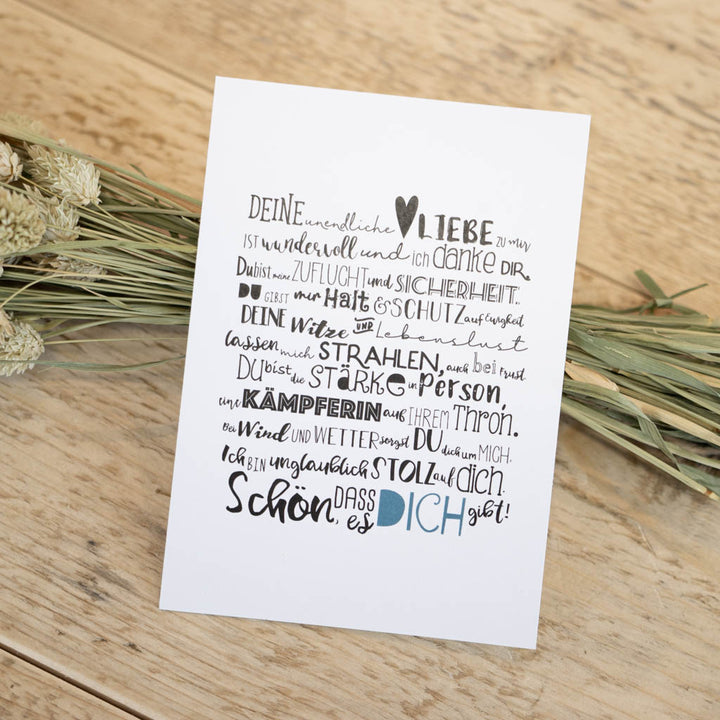 DEINE unendliche LIEBE zu mir
IST wundervoll und ich danke DIR.
Du bist meine ZUFLUCHT und SICHERHEIT.
DU GIBST mir Halt & SCHUTZ auf Ewigkeit
DEINE Witze UND Lebenslust
lassen mich STRAHLEN, auch bei Frust.
DU bist die STÄRKE in Person,
eine KÄMPFERIN auf IHREM Thron.
Bei Wind UND WETTER sorgst DU dich um MICH.
Ich BIN unglaublich STOLZ auf dich.
Schön, DASS es DICH gibt!